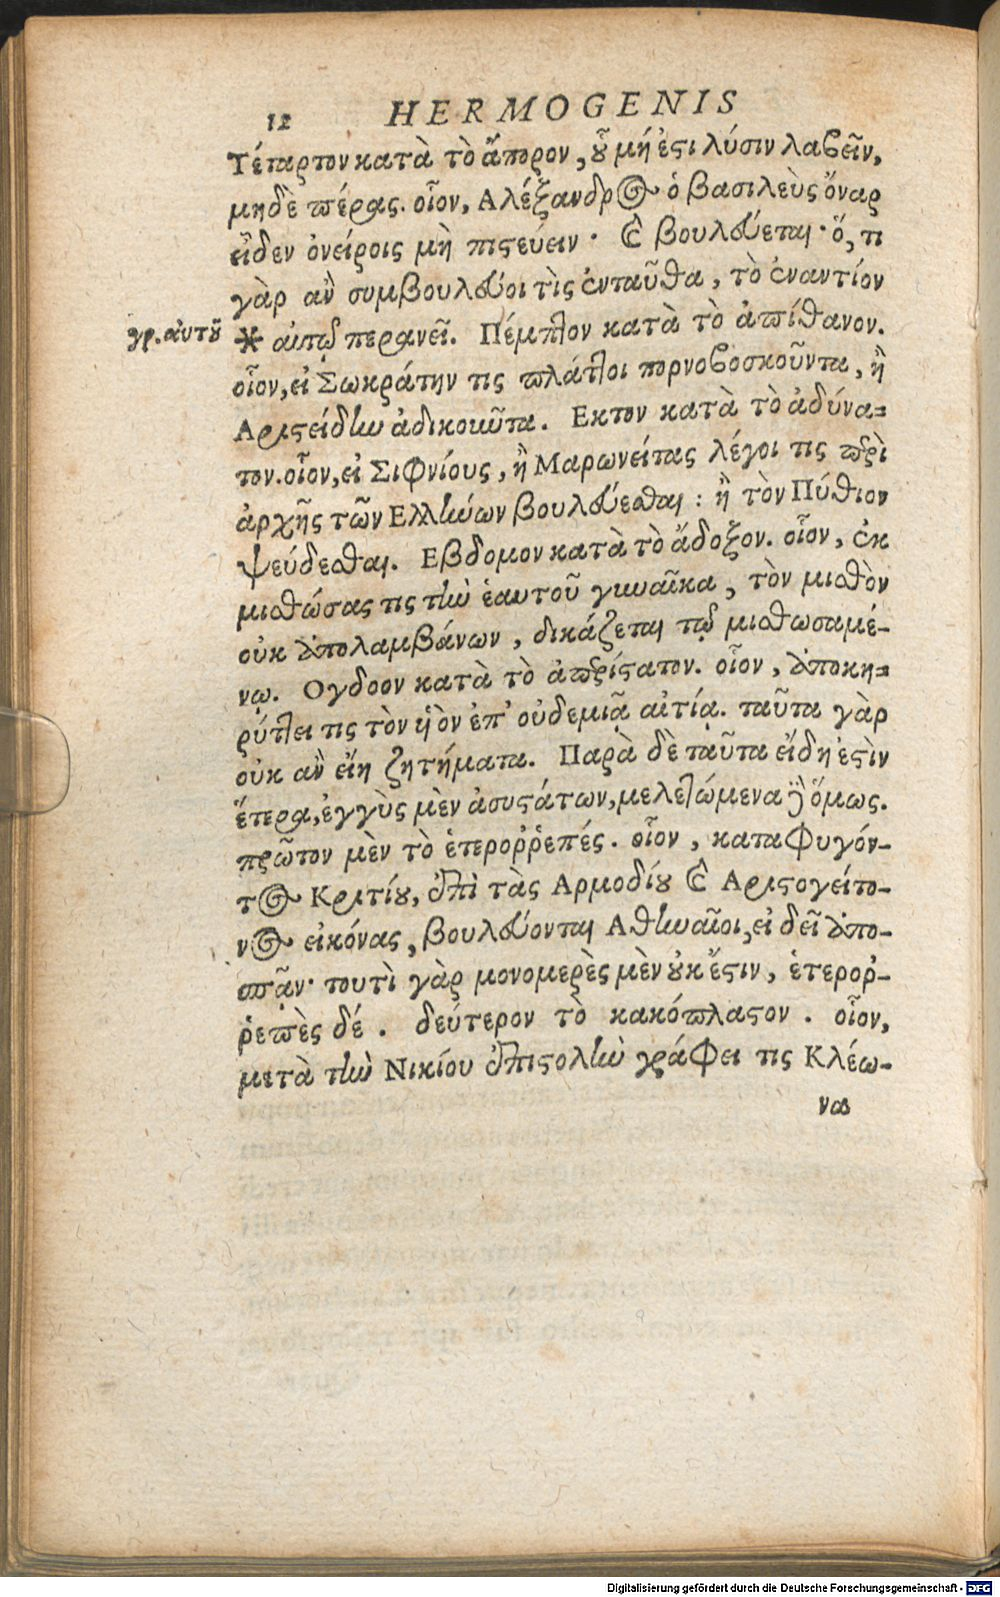 12 HERMOGENIS
Τέταρτον κατὰ τὸ ἄπορον, οὗ μή ἐστι λύσιν λαβεῖν,
μηδὲ πέρας. οἷον, Αλέξανδρος ὁ βασιλεὺς ὄναρ
εἶδεν ὀνείροις μὴ πιστεύειν· καὶ βουλεύεται· ὅ, τι
γὰρ ἂν συμβουλεύοι τὶς ἐνταῦθα, τὸ ἐναντίον
γρ. αὐτοῦ * αὐτῷ περανεῖ. Πέμπτον κατὰ τὸ ἀπίθανον.
οἷον, εἰ Σωκράτην τις πλάττοι πορνοβοσκοῦντα, ἢ
Αριστείδην ἀδικοῦντα. Εκτον κατὰ τὸ ἀδύνα-
τον. οἷον, εἰ Σιφνίους, ἢ Μαρωνείτας λέγοι τις περὶ
ἀρχῆς τῶν Ελλήνων βουλεύεσθαι: ἢ τὸν Πύθιον
ψεύδεσθαι. Εβδομον κατὰ τὸ ἄδοξον. οἷον, ἐκ
μισθώσας τις τὴν ἑαυτοῦ γυναῖκα, τὸν μισθὸν
οὐκ ἀπολαμβάνων, δικάζεται τῷ μισθωσαμέ-
νῳ. Ογδοον κατὰ τὸ ἀπερίστατον. οἷον, ἀποκη-
ρύττει τις τὸν υἱὸν ἐπ' οὐδεμιᾷ αἰτίᾳ. ταῦτα γὰρ
οὐκ ἂν εἴη ζητήματα. Παρὰ δὲ ταῦτα εἴδη ἐστὶν
ἕτερα, ἐγγὺς μὲν ἀσυστάτων, μελετώμενα δὲ ὅμως.
πρῶτον μὲν τὸ ἑτεροῤῥεπές. οἷον, καταφυγόν-
τος Κριτίου, ἐπὶ τὰς Αρμοδίου καὶ Αριστογείτο-
νος εἰκόνας, βουλεύονται Αθηναῖοι, εἰ δεῖ ἀπο-
σπᾷν· τουτὶ γὰρ μονομερὲς μὲν οὐκ ἔστιν, ἑτεροῤ-
ῥεπὲς δέ. δεύτερον τὸ κακόπλαστον. οἷον,
μετὰ τὴν Νικίου ἐπιστολὴν γράφει τις Κλέω-
να
Digitalisierung gefördert durch die Deutsche Forschungsgemeinschaft - DFG